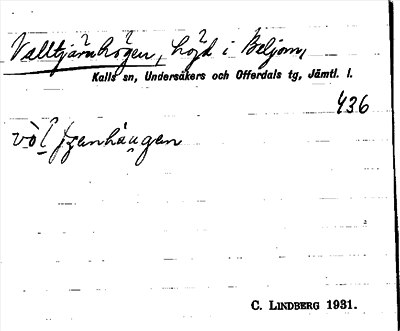 Valltjärnhögen, höjd i Beljom,
Kalls sn, Undersåkers och Offerdals tg, Jämtl. l.
436
C. LINDBERG 1931.